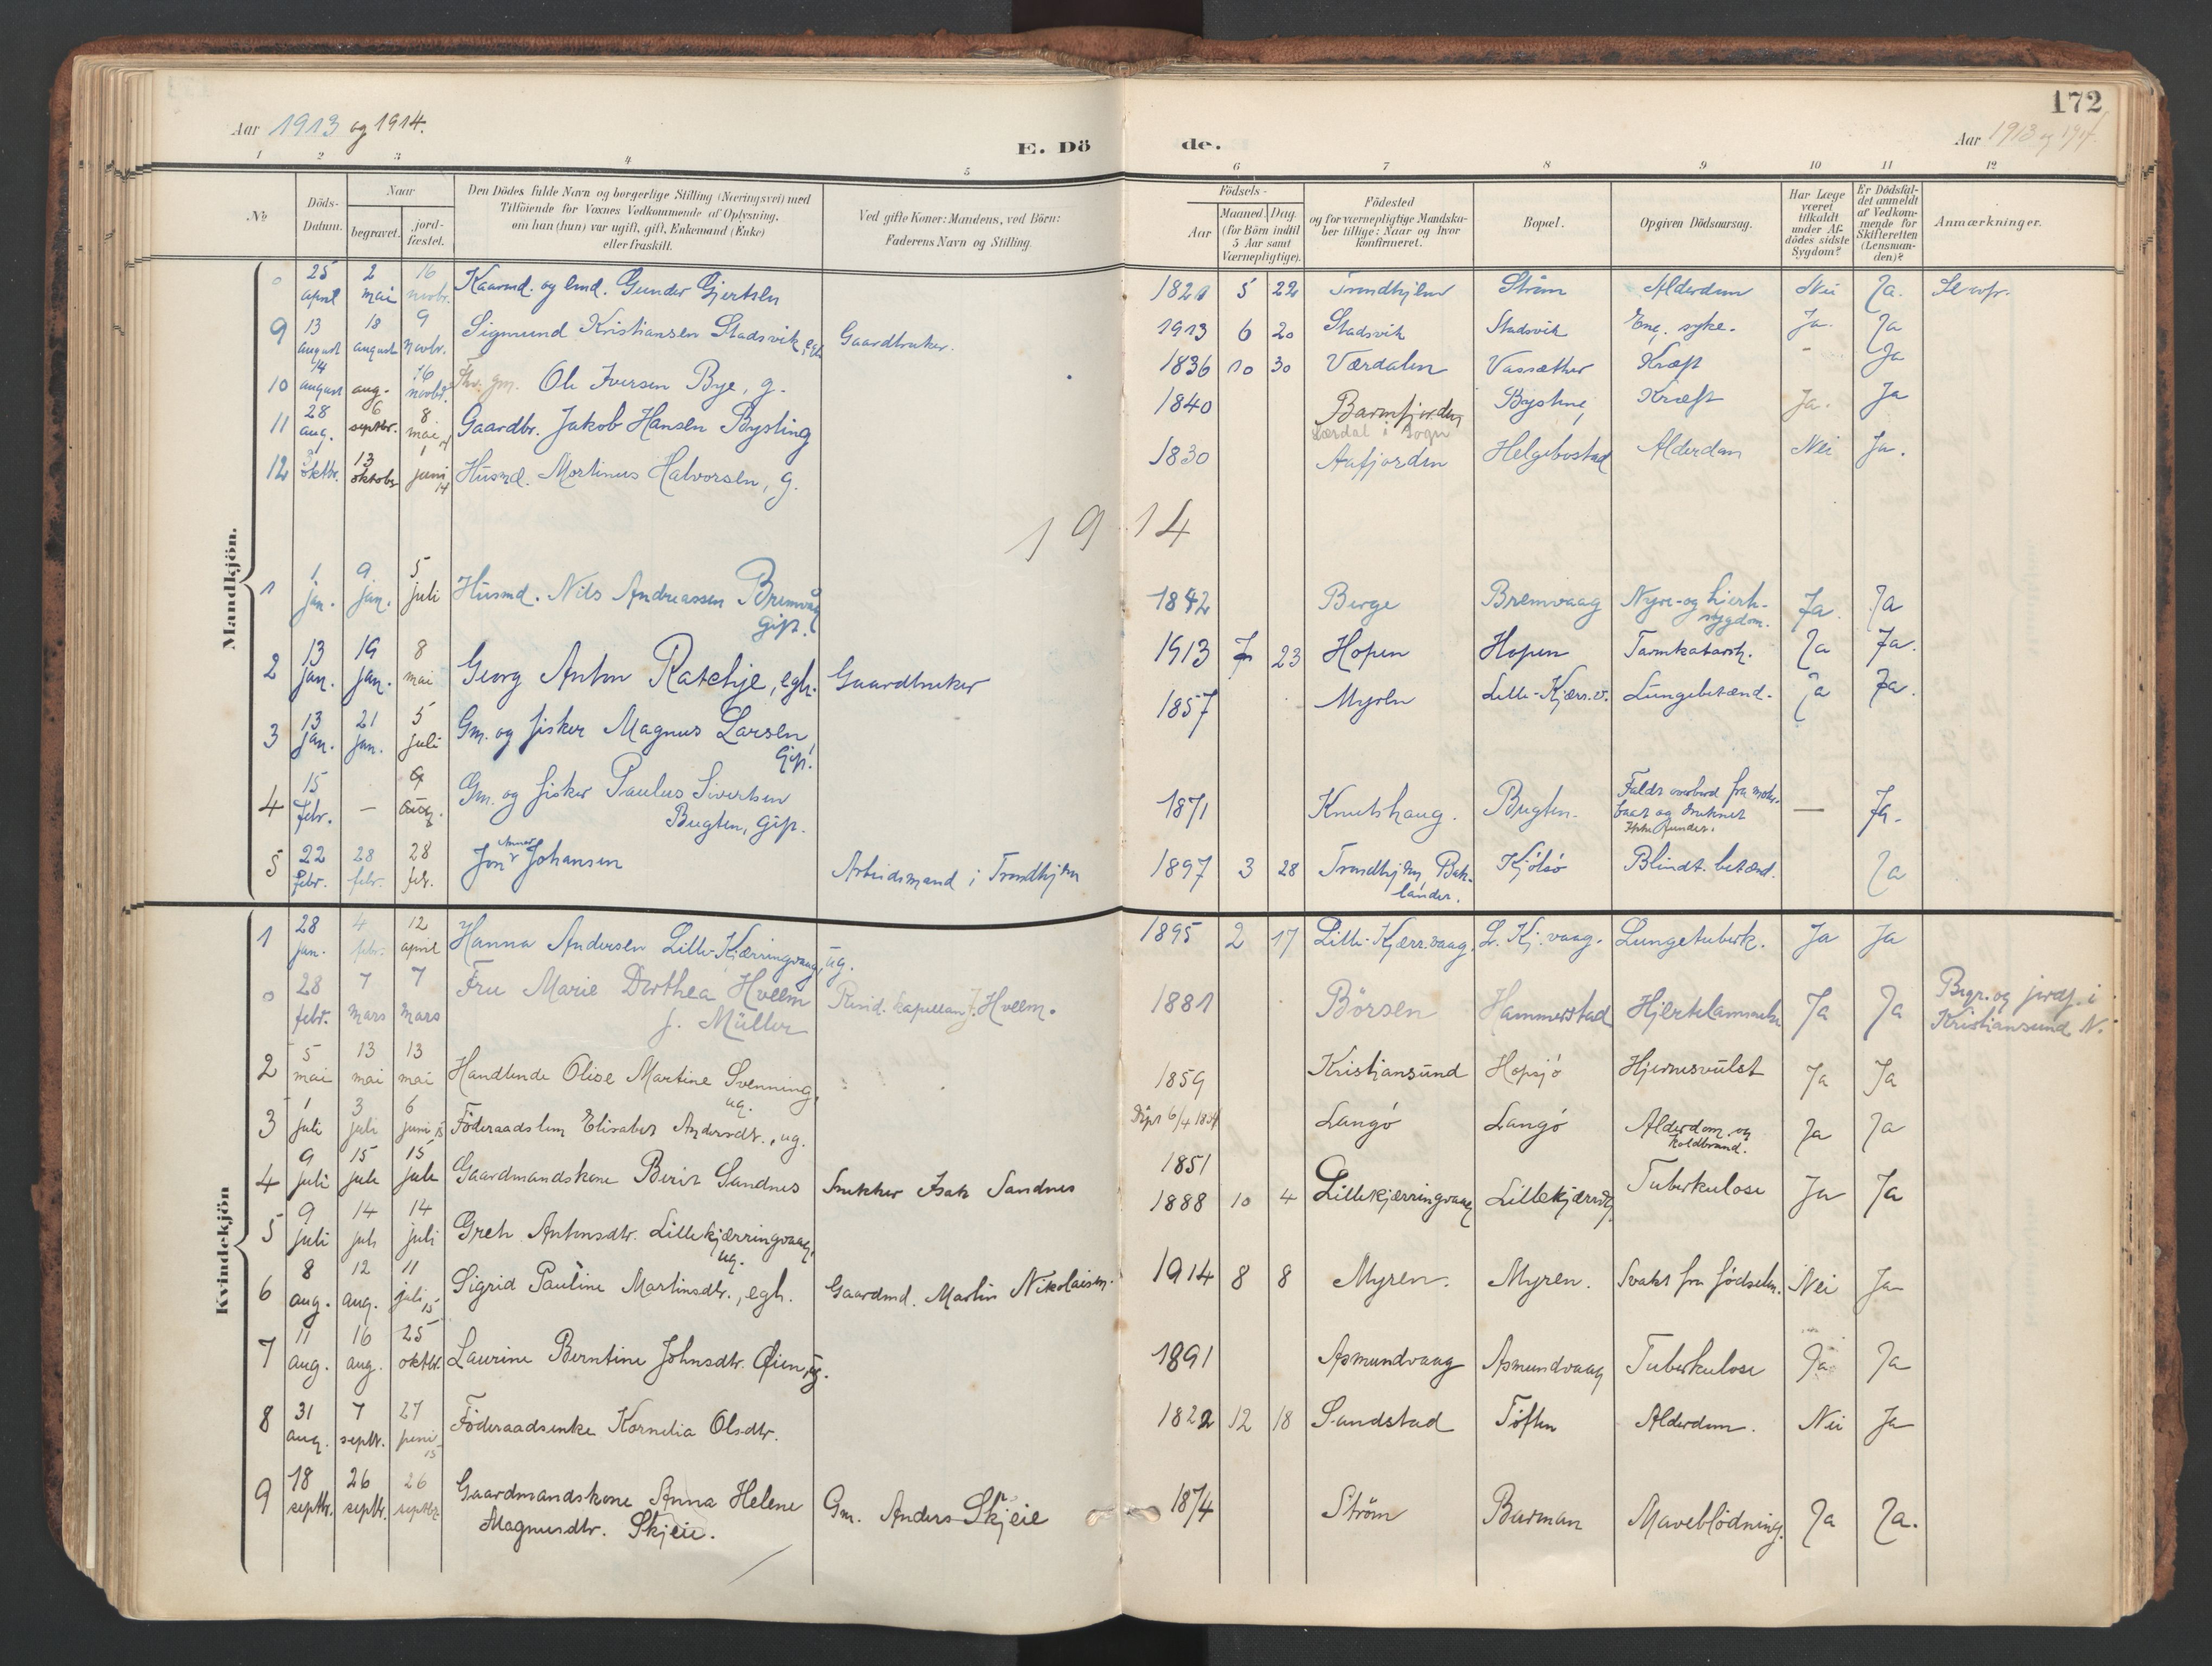 172
Aar 1913 og 1914.
E. Dö
de.
Aar 1913 og 1914.
1 2 3 4 5 6 7 8 9 10 11 12
No
Döds-Datum.
Naar
begravet.
jord-fæstet.
Den Dödes fulde Navn og borgerlige Stilling (Næringsvei) med
Tilföiende for Voxnes Vedkommende af Oplysning,
om han (hun) var ugift, gift, Enkemand (Enke)
eller fraskilt.
Ved gifte Koner: Mandens, ved Börn:
Faderens Navn og Stilling.
Födsels-
Aar
Maaned. Dag.
(for Börn indtil
5 Aar samt
Værnepligtige).
Födested
og for værnepligtige Mandska-
ber tillige: Naar og hvor
konfirmeret.
Bopæl.
Opgiven Dödsaarsag.
Har Læge
været
tilkaldt
under Af-
dödes sidste
Sygdom?
Er Dödsfal-
det anmeldt
af Vedkom-
mende for
Skifteretten
(Lensman-
den)?
Anmærkninger.
Mandkjön.
0 25 april 2 mai 16 novbr. Kaarmd. og emd. Gunder Gjertsen 1821 5 22 Trondhjem Ström Alderdom Nei Ja.
9 13 august 18 august 9 novbr. Sigmund Kristiansen Stadsvik, egh. Gaardbruker. 1913 6 20 Stadsvik Stadsvik Eng. syke. Ja. Ja
10 14 august aug. 16 novbr. gm. Ole Iversen Bye, g. 1836 10 30 Værdalen Vassæther Kræft - Ja
11 28 aug. 6 septbr. 8 mai 14 Gaardbr. Jakob Hansen Bysting 1840 Barmfjorden Lærdal i Sogn Kræft Ja. Ja
12 oktbr. 13 oktober 1 juni 14 Husmd. Mortinus Halvorsen, g. 1830 Aafjorden Helgebostad Alderdom Nei Ja.
1914
1 1 jan. 9 jan. 5 juli Husmd. Nils Andreassen Bremvåg
Gift. 1842 Berge Bremvaag Nyre- og hjerte-
sygdom. Ja. Ja
2 13 jan. 19 jan. 8 mai Georg Anton Ratchje, egh. Gaardbruker 1913 7 23 Hopen Hopen Tarmkatarrh. Ja Ja.
3 13 jan. 21 jan. 5 juli Gm. og fisker Magnus Larsen,
Gift. 1857 Myren Lille-Kjærr.v. Lungebetænd. Ja Ja.
4 15 febr. — 9 aug. Gm. og fisker Paulus Sivertsen
Bugten, Gift. 1871 Knutshaug. Bugten. Faldt overbord fra motor-
baat og druknet
Ikke funder. — Ja.
5 22 febr. 28 febr. 28 feb. Jon Johansen Arbeidsmand i Trondhjem 1897 3 28 Trondhjem, Bak-
landet. Kjölsö Blindt. betænd. Ja
Kvindekjön
1 28 jan. 4 febr. 12 april Hanna Andersen Lille-Kjærringvaag, ug. 1895 2 17 Lille-Kjærr.vaag. L. Kj. vaag. Lungetuberk. Ja Ja
0 28 febr. 7 mars 7 mars Fru Marie Dorthea Hveem
f. Müller Resid. kapellan J. Hveem. 1881 Börsen Hammerstad Hjertelammelse Ja Ja Begr. og jordf. i
Kristiansund N.
2 5 mai 13 mai 13 mai Handlende Olise Martine Svenning,
ug. 1859 Kristiansund Hopsjö Hjernesvulst Ja Ja
3 1 juli 3 juli 6 juni 15 Föderaadslem Elisabet Andersdt., ug. Döpt 6/4 1834 Langö Langö Alderdom og
koldbrand. Ja Ja
4 9 juli 15 juli 15 juli Gaardmandskone Berit Sandnes Snekker Isak Sandnes 1851
5 9 juli 14 juli 14 juli Grete Antonsdtr. Lillekjærringvaag,
ug. 1888 10 4 Lillekjærringvaag Lillekjærrvg. Tuberkulose Ja Ja
6 8 aug. 12 aug. 11 juli 15 Sigrid Pauline Martinsdtr., egh. Gaardmd. Martin Nikolaisen. 1914 8 8 Myren. Myren. Svakt fra fødselen. Nei Ja
7 11 aug. 16 aug. 25 oktbr. Laurine Berntine Johnsdtr. Øien, ug. 1891 Asmundvaag Asmundvaag Tuberkulose Ja Ja
8 31 aug. 7 septbr. 27 juni 15 Föderaadsenke Kornelia Olsdtr. 1822 12 18 Sandstad Töften Alderdom. Nei Ja
9 18 septbr. 26 septbr. 26 septbr. Gaardmandskone Anna Helene
Magnusdtr. Skjeie. Gm. Anders Skjeie 1874 Ström Barman Maveblödning. Ja Ja.